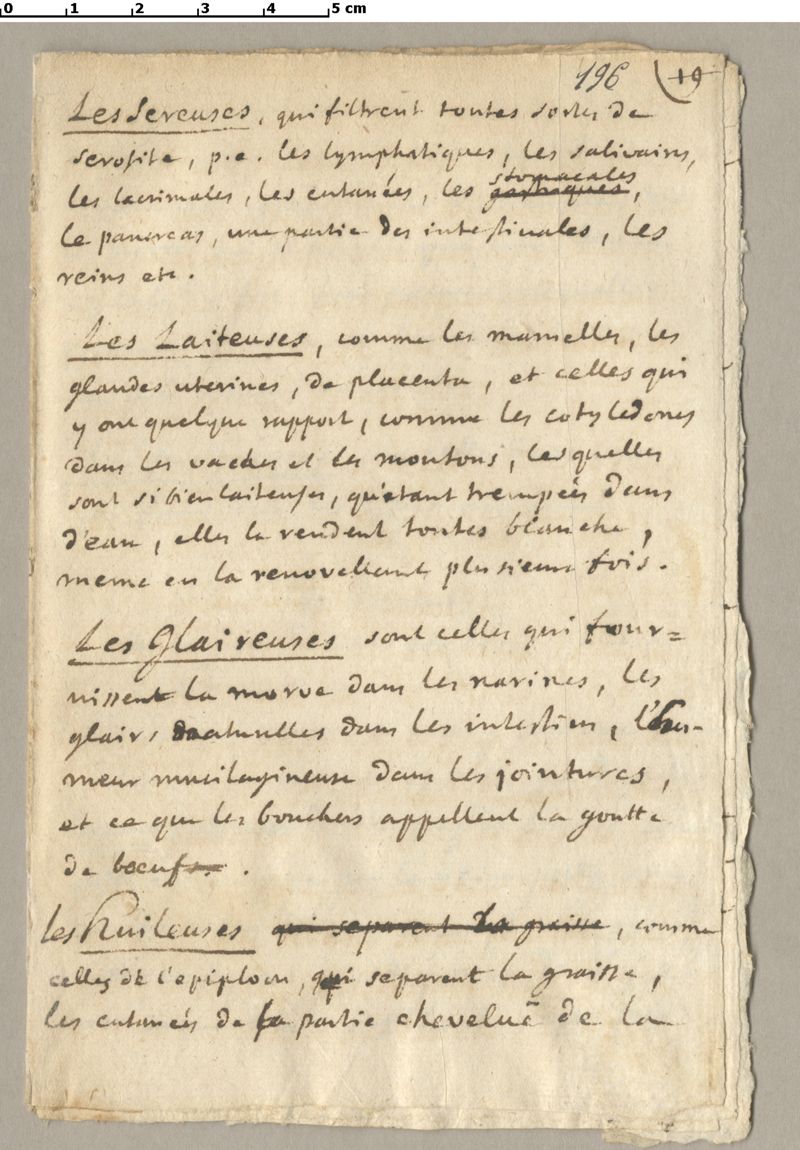 0 1 2 3 4 5 cm
196 19
Les Sereuses, qui filtrent toutes sortes de
serosite, p.e. les lymphatiques, les salivaires,
stomacales
les lacrimales, les cutanées, les gastriques,
le pancreas, une partie des intestinales, les
reins etc.
Les Laiteuses, comme les mamelles, les
glandes uterines, de placenta, et celles qui
y ont quelque rapport, comme les cotyledones
dans les vaches et les moutons, lesquelles
sont si bien laiteuses, qu'etant trempées dans
d'eau, elles la rendent toutes blanche,
meme en la renovellant plusieurs fois.
Les Glaireuses sont celles qui four=
nissent la morve dans les narines, les
glaires naturelles dans les intestins, l'hu-
meur mucilagineuse dans les jointures,
et ce que les bouchers appellent la goutte
de boeufs.
les Huileuses qui separent la graisse, comme
celles de l'epiploon, qui separent la graisse,
les cutaneés de la partie cheveluë de la